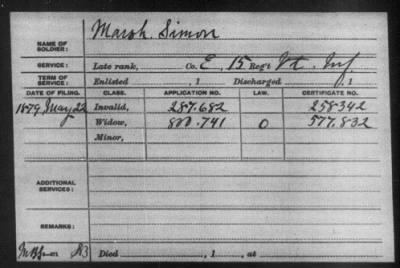 NAME OF SOLDIER: Marsh, Simon
SERVICE: Late rank, Co. E, 15 Reg't Vt. Inf.
TERM OF SERVICE: Enlisted , 1 Discharged , 1
DATE OF FILING. CLASS. APPLICATION NO. LAW. CERTIFICATE NO.
1879 May 22 Invalid, 287.682 258342
Widow, 800.741 O 577.832
Minor,
ADDITIONAL SERVICES:
REMARKS:
Died , 1 , at